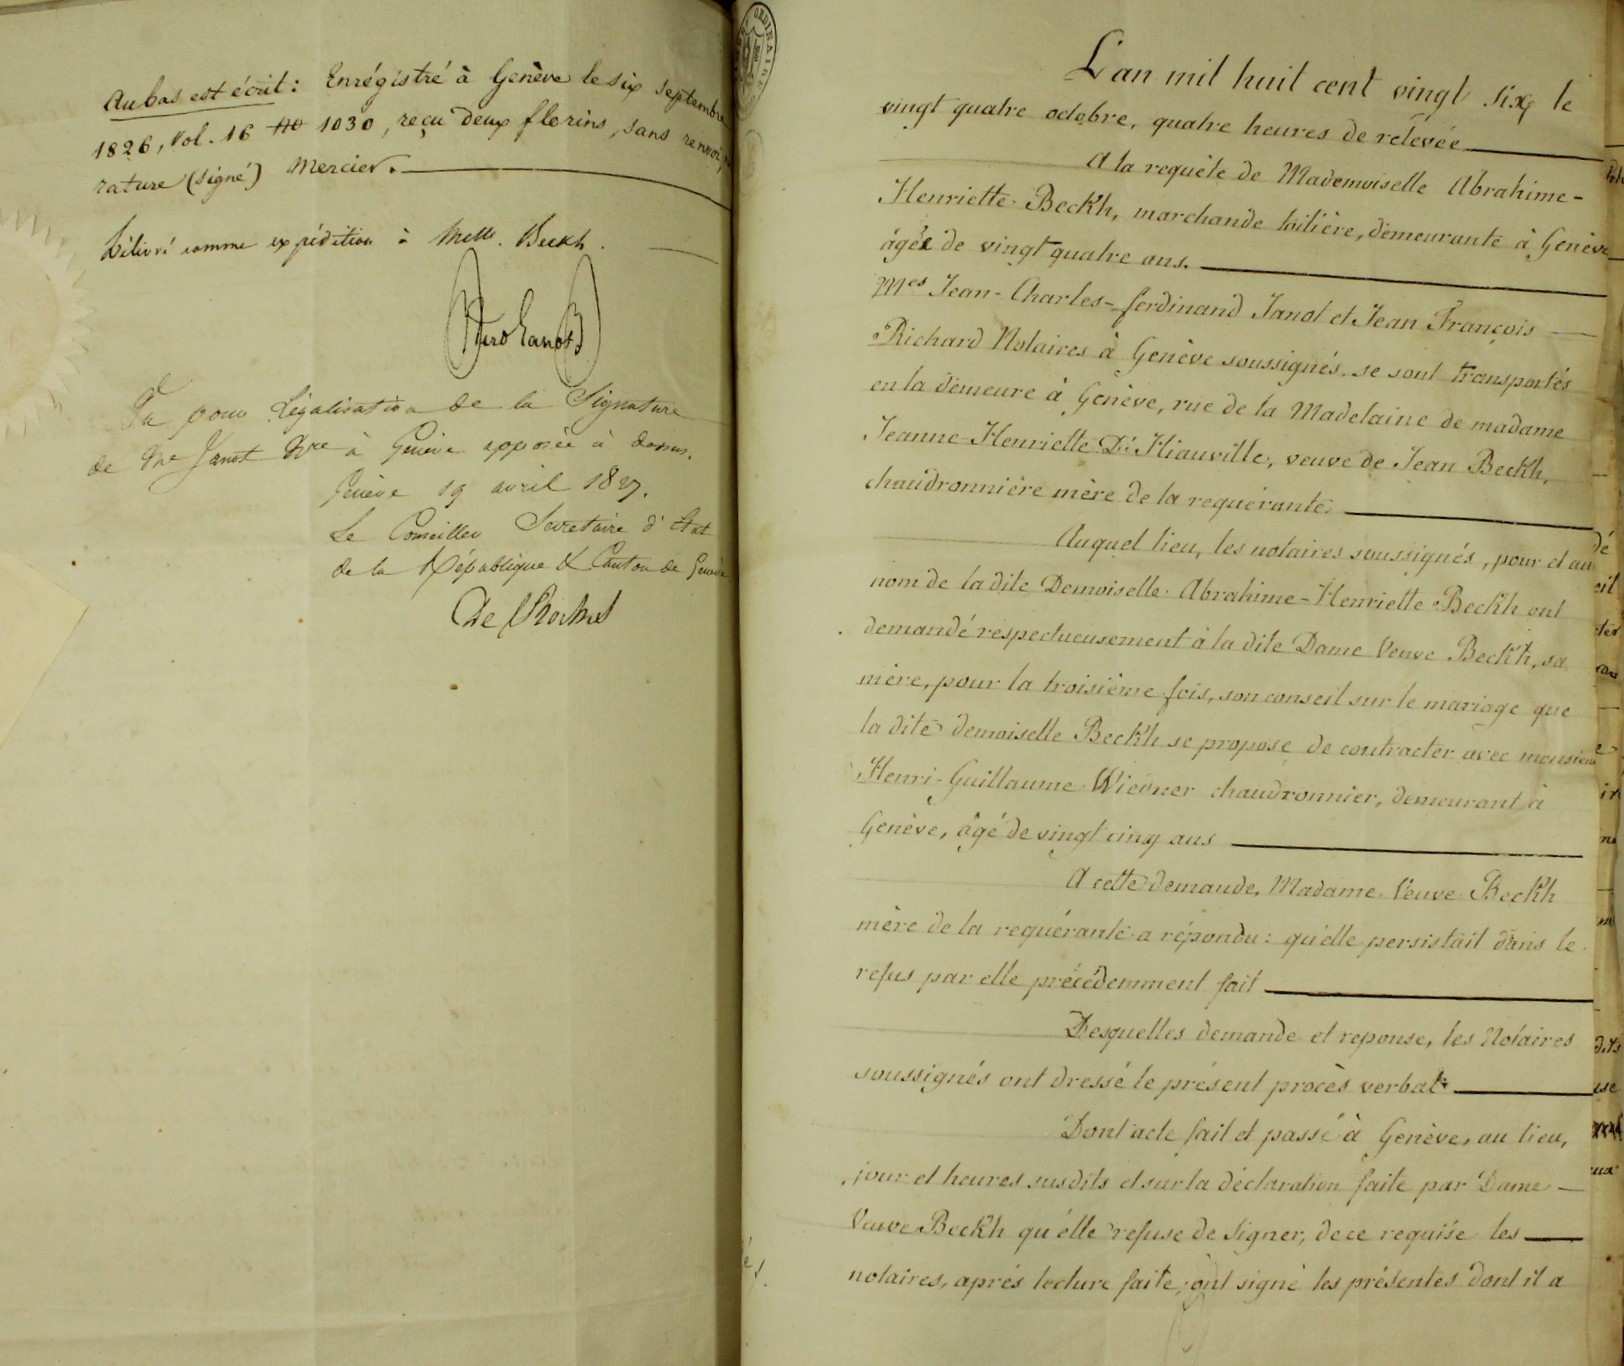 Au bas est écrit: Enrégistré à Genève le six septembre
1826, Vol. 16 No 1030, reçu deux florins, sans renvoi,
rature (signé) Mercier.
Délivré comme expédition à Melle. Beckh.
Vu pour Légalisation de la Signature
de Me Janot Nre à Genève apposée ci dessus.
Genève 19 avril 1827.
Le Conseiller Secretaire d'Etat
de la République & Canton de Genève
De Roches
L'an mil huit cent vingt six, le
vingt quatre octobre, quatre heures de relevée
A la requête de Mademoiselle Abrahime-
Henriette Beckh, marchande toilière, demeurante à Genève
âgée de vingt quatre ans.
Mes Jean-Charles-ferdinand Janot et Jean François
Richard Notaires à Genève soussignés, se sont transportés
en la demeure à Genève, rue de la Madelaine de madame
Jeanne-Henriette D' Hiauville, veuve de Jean Beckh,
chaudronnière mère de la requérante.
Auquel lieu, les notaires soussignés, pour et au
nom de la dite Demoiselle Abrahime-Henriette Beckh ont
demandé respectueusement à la dite Dame Veuve Beckh, sa
mère, pour la troisième fois, son conseil sur le mariage que
la dite demoiselle Beckh se propose de contracter avec monsieur
Henri-Guillaume Wiedner chaudronnier, demeurant à
Genève, âgé de vingt cinq ans
A cette demande, Madame Veuve Beckh
mère de la requérante a répondu: qu'elle persistait dans le
refus par elle précédemment fait
Desquelles demande et reponse, les Notaires
soussignés ont dressé le présent procès verbal.
Dont acte fait et passé à Genève, au lieu,
jour et heures susdits et sur la déclaration faite par Dame
Veuve Beckh qu'elle refuse de signer, de ce requise les
notaires, après lecture faite, ont signé les présentes dont il a